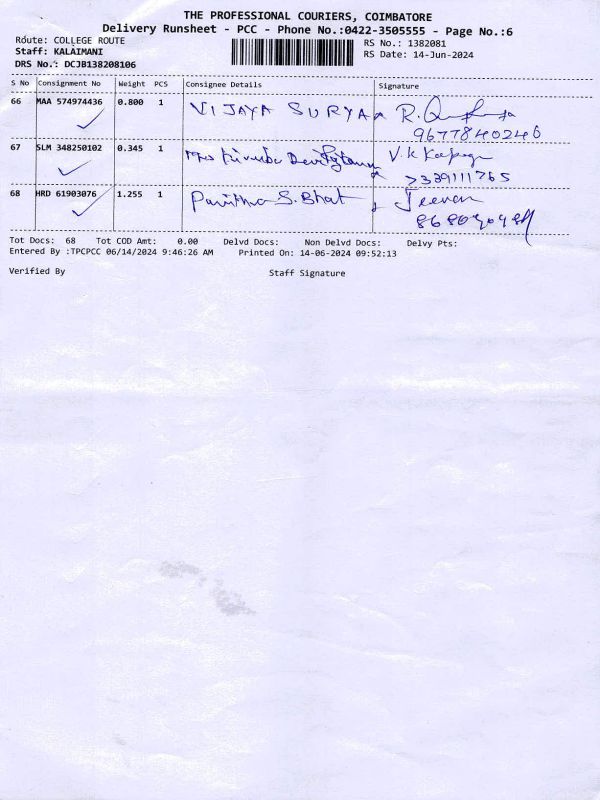 THE PROFESSIONAL COURIERS, COIMBATORE
Delivery Runsheet - PCC - Phone No.:0422-3505555 - Page No.:6
Route: COLLEGE ROUTE
RS No.: 1382081
Staff: KALAIMANI
RS Date: 14-Jun-2024
DRS No.: DCJB138208106
S No Consignment No Weight PCS Consignee Details Signature
66 MAA 574974436 0.800 1 VIJAYA SURYAA R.
9677840246
67 SLM 348250102 0.345 1 Devi V.K
7339111765
68 HRD 61903076 1.255 1 Pavithra S. Bhat Jeevan
Tot Docs: 68 Tot COD Amt: 0.00 Delvd Docs: Non Delvd Docs: Delvy Pts:
Entered By :TPCPCC 06/14/2024 9:46:26 AM Printed On: 14-06-2024 09:52:13
Verified By Staff Signature